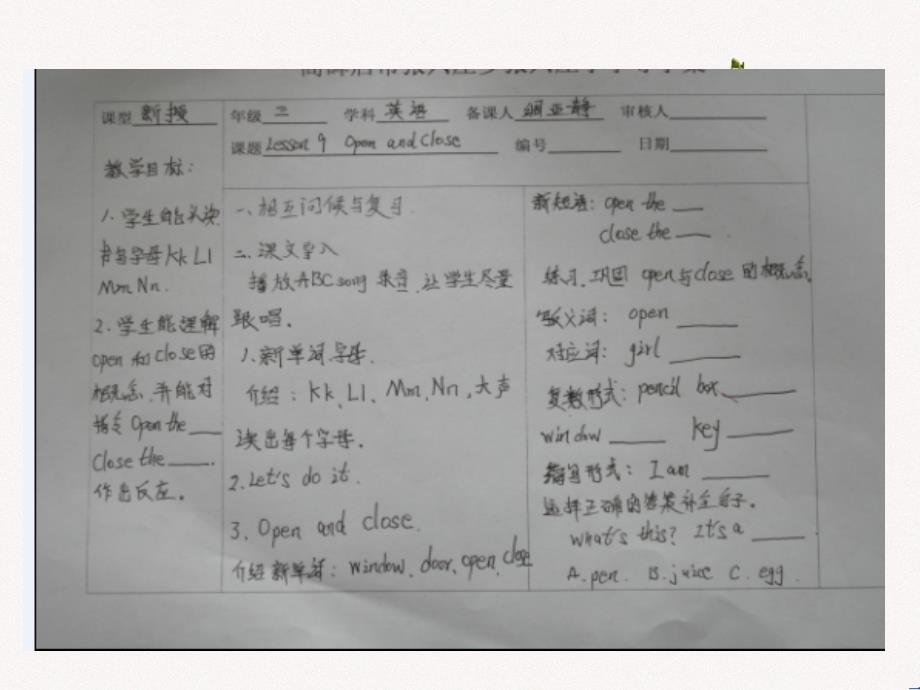 课型 新授
年级 三 学科 英语 备课人 审核人
课题 Lesson 9 Open and Close 编号 日期
教学目标:
1、学生能认读
书写字母Kk Ll
Mm Nn.
2、学生能理解
open 和 close 的
概念,并能对
指令 Open the ___
Close the ___.
作出反应。
一、相互问候与复习.
二、课文导入
播放ABC song 录音,让学生尽量
跟唱。
1、新单词导学.
介绍:Kk、Ll、Mm、Nn,大声
读出每个字母。
2. Let's do it.
3、Open and close.
介绍新单词:window、door、open、close
新短语:open the ___
close the ___.
练习.巩固 open与close 的概念.
反义词:open ___
对应词:girl ___
复数形式:pencil box ___
window ___ key ___
缩写形式:I am ___
选择正确的答案补全句子。
What's this? It's a ___
A. pen. B. juice C. egg.